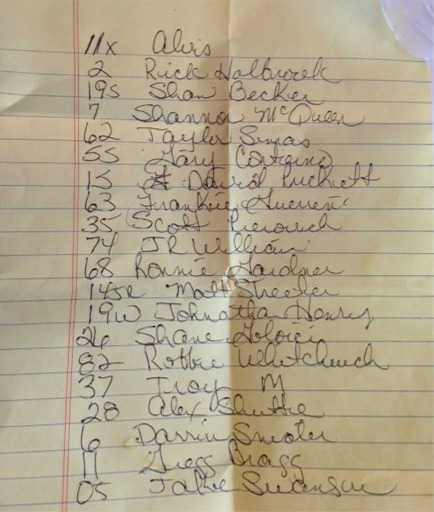 11x Alvis
2 Rick Holbrook
19s Shan Becker
7 Shannon McQueen
62 Taylor Simas
55 Gary
15 David Pucknett
63 Frankie Guerrini
35 Scott
74 JR William
68 Ronnie Gardner
14 Matt Streeter
19w Johnathan Henry
26 Shane Golobic
82 Robbie Whitchurch
37 Troy M
28 Alex Shuttle
6 Darrin Smoler
11 Gregg Bragg
05 Jake Swanson